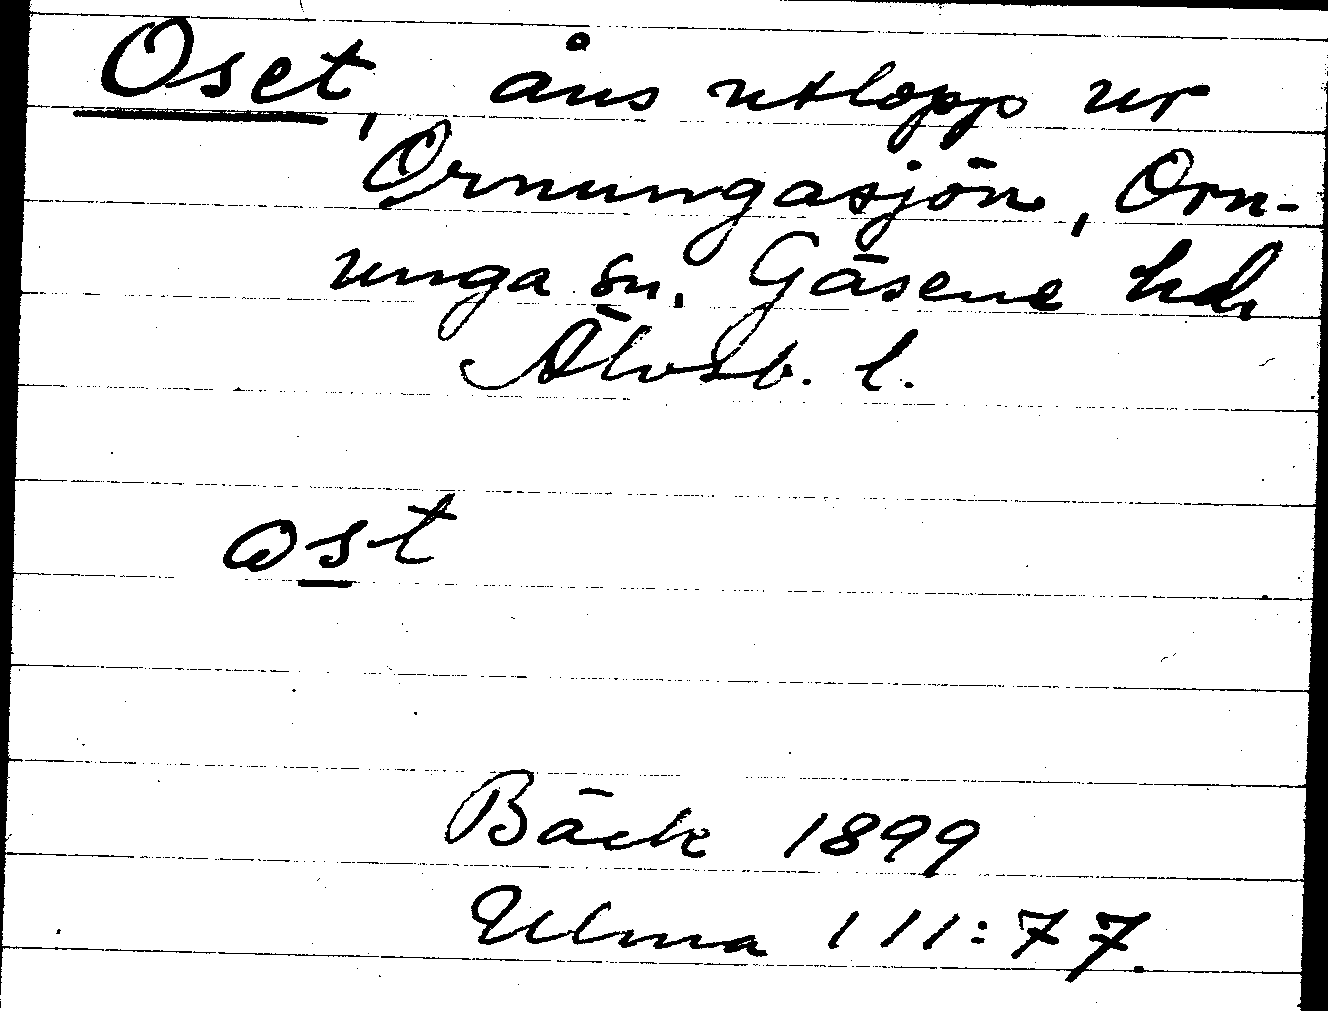 Oset, åns utlopp ur
Ornungasjön, Orn-
unga sn. Gäsene hd,
Älvsb. l.
ost
Bäck 1899
Ulma 111:77.